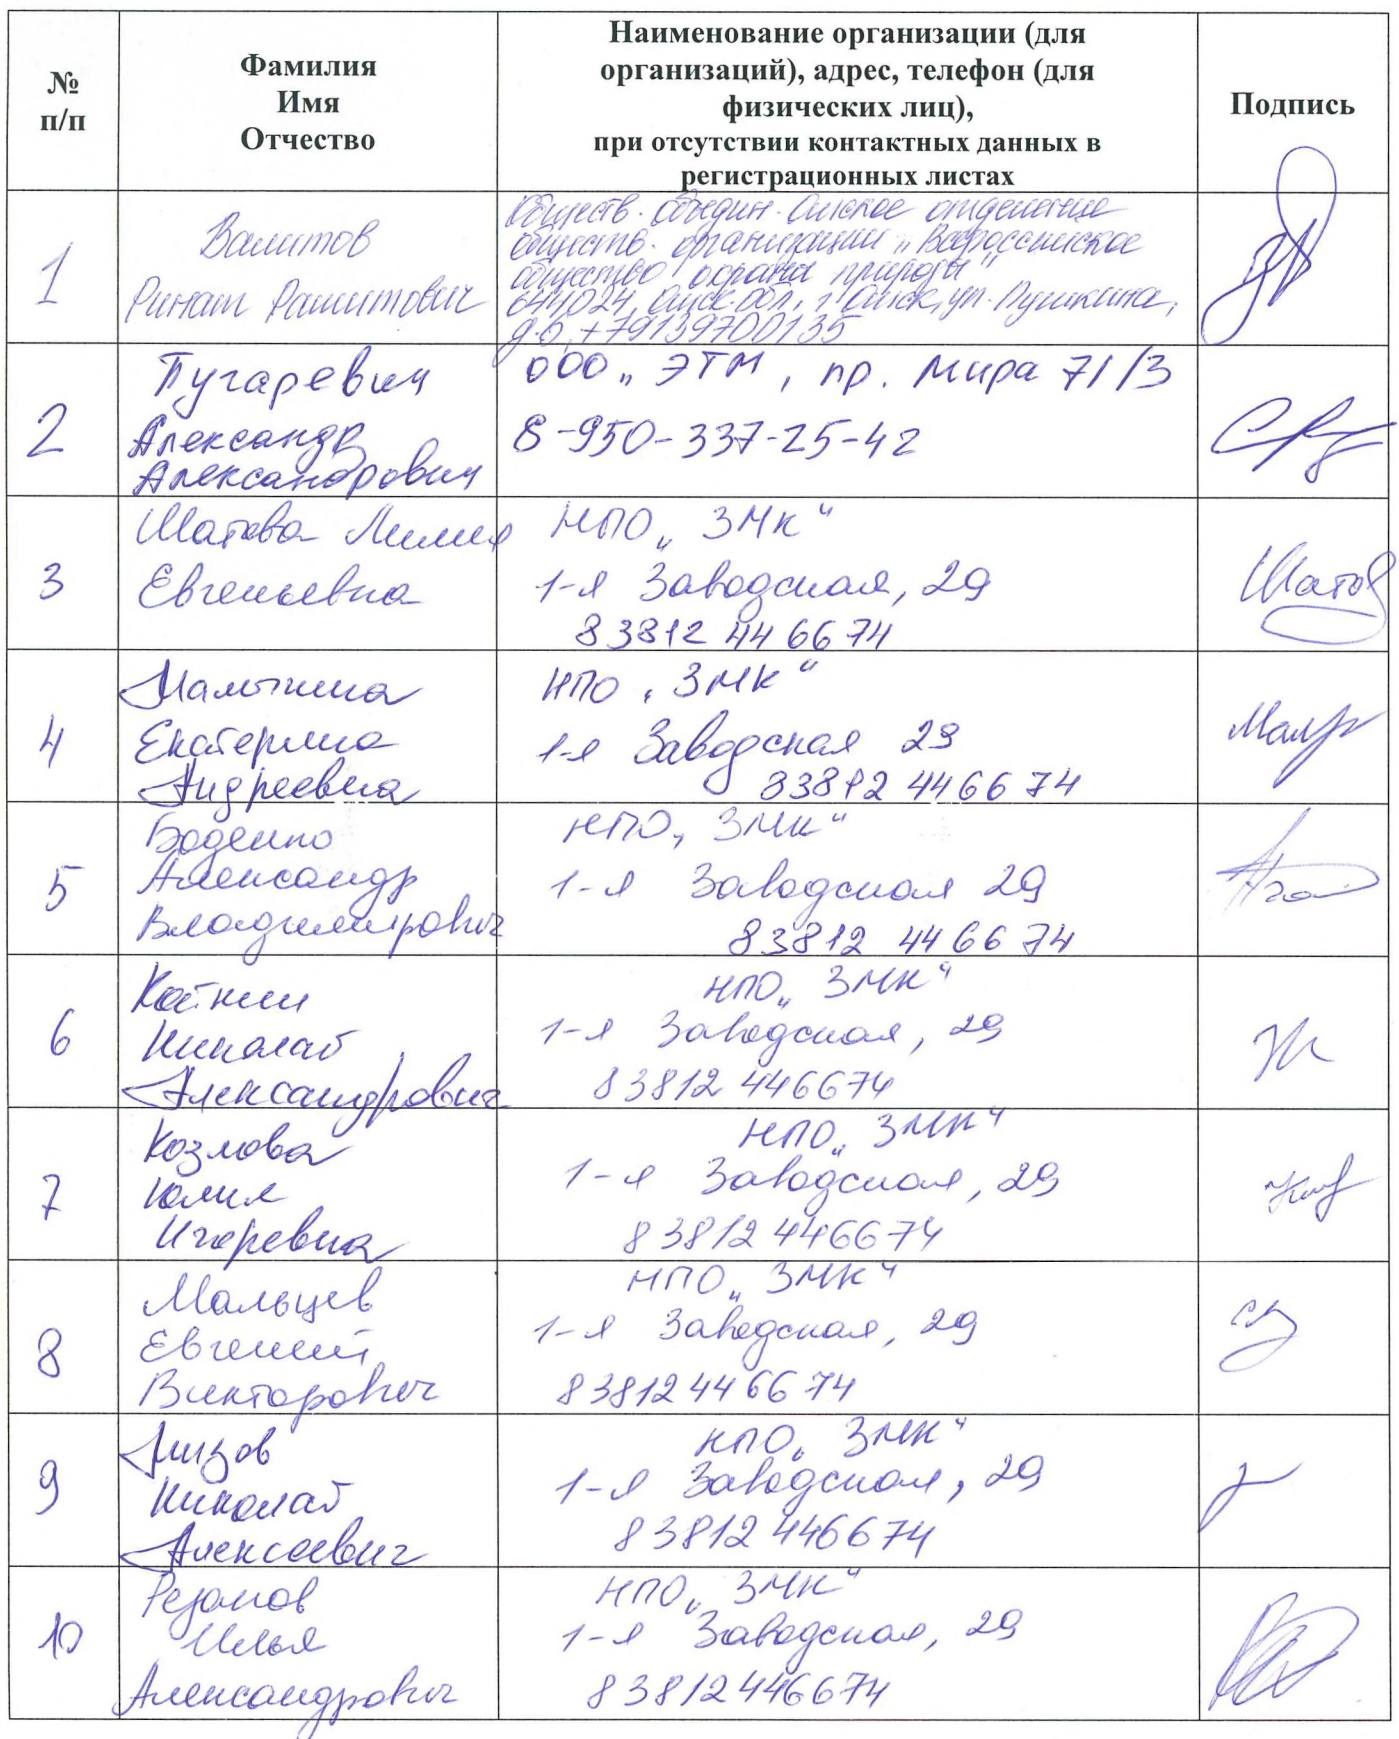 №
п/п
Фамилия
Имя
Отчество
Наименование организации (для
организаций), адрес, телефон (для
физических лиц),
при отсутствии контактных данных в
регистрационных листах
Подпись
1
Валитов
Ринат Рашитович
Обществ. объедин. Омское отделение
обществ. организации "Всероссийское
общество охраны природы"
644024, Омск. обл., г. Омск, ул. Пушкина,
д.6, +79139700135
2
Пугаревич
Александр
Александрович
ООО „ ЭТМ , пр. Мира 71/3
8-950-337-25-42
3
Шатова Лилия
Евгеньевна
НПО „ ЗМК “
1-я Заводская, 29
83812 44 66 74
Шатов
4
Малыгина
Екатерина
Андреевна
НПО „ ЗМК “
1-я Заводская 29
83812 44 66 74
5
Боденко
Александр
Владимирович
НПО „ ЗМК “
1-я Заводская 29
83812 44 66 74
6
Кайкин
Николай
Александрович
НПО „ ЗМК “
1-я Заводская, 29
83812 446674
7
Козлова
Юлия
Игоревна
НПО „ ЗМК “
1-я Заводская, 29
83812 446674
8
Мальцев
Евгений
Викторович
НПО „ ЗМК “
1-я Заводская, 29
83812 44 66 74
9
Николай
Алексеевич
НПО „ ЗМК “
1-я Заводская, 29
83812 446674
10
Резанов
Илья
Александрович
НПО „ ЗМК “
1-я Заводская, 29
83812 446674